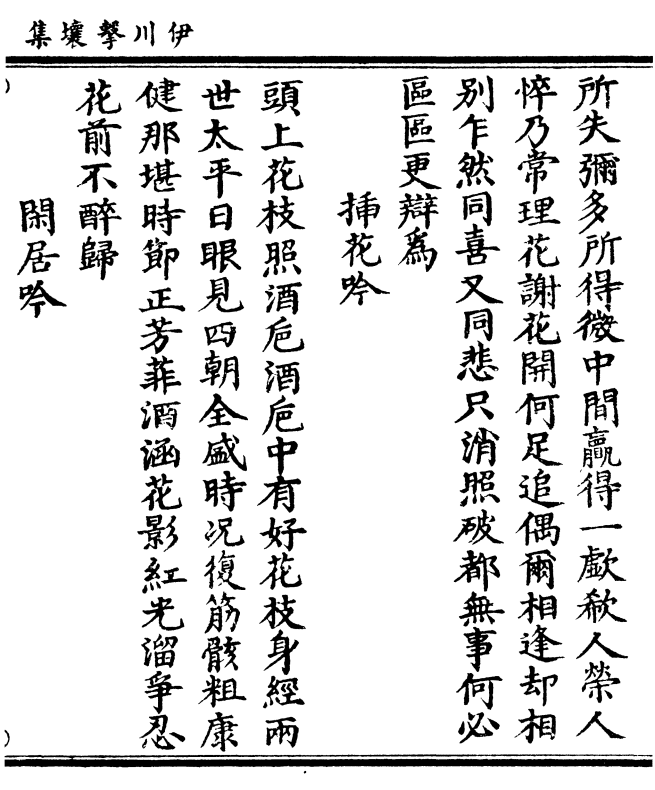 伊川擊壤集
所失彌多所得微中間贏得一歔欷人榮人
悴乃常理花謝花開何足追偶爾相逢却相
別乍然同喜又同悲只消照破都無事何必
區區更辯為
挿花吟
頭上花枝照酒巵酒巵中有好花枝身經兩
世太平日眼見四朝全盛時况復筋骸粗康
健那堪時節正芳菲酒涵花影紅光溜爭忍
花前不醉歸
閑居吟